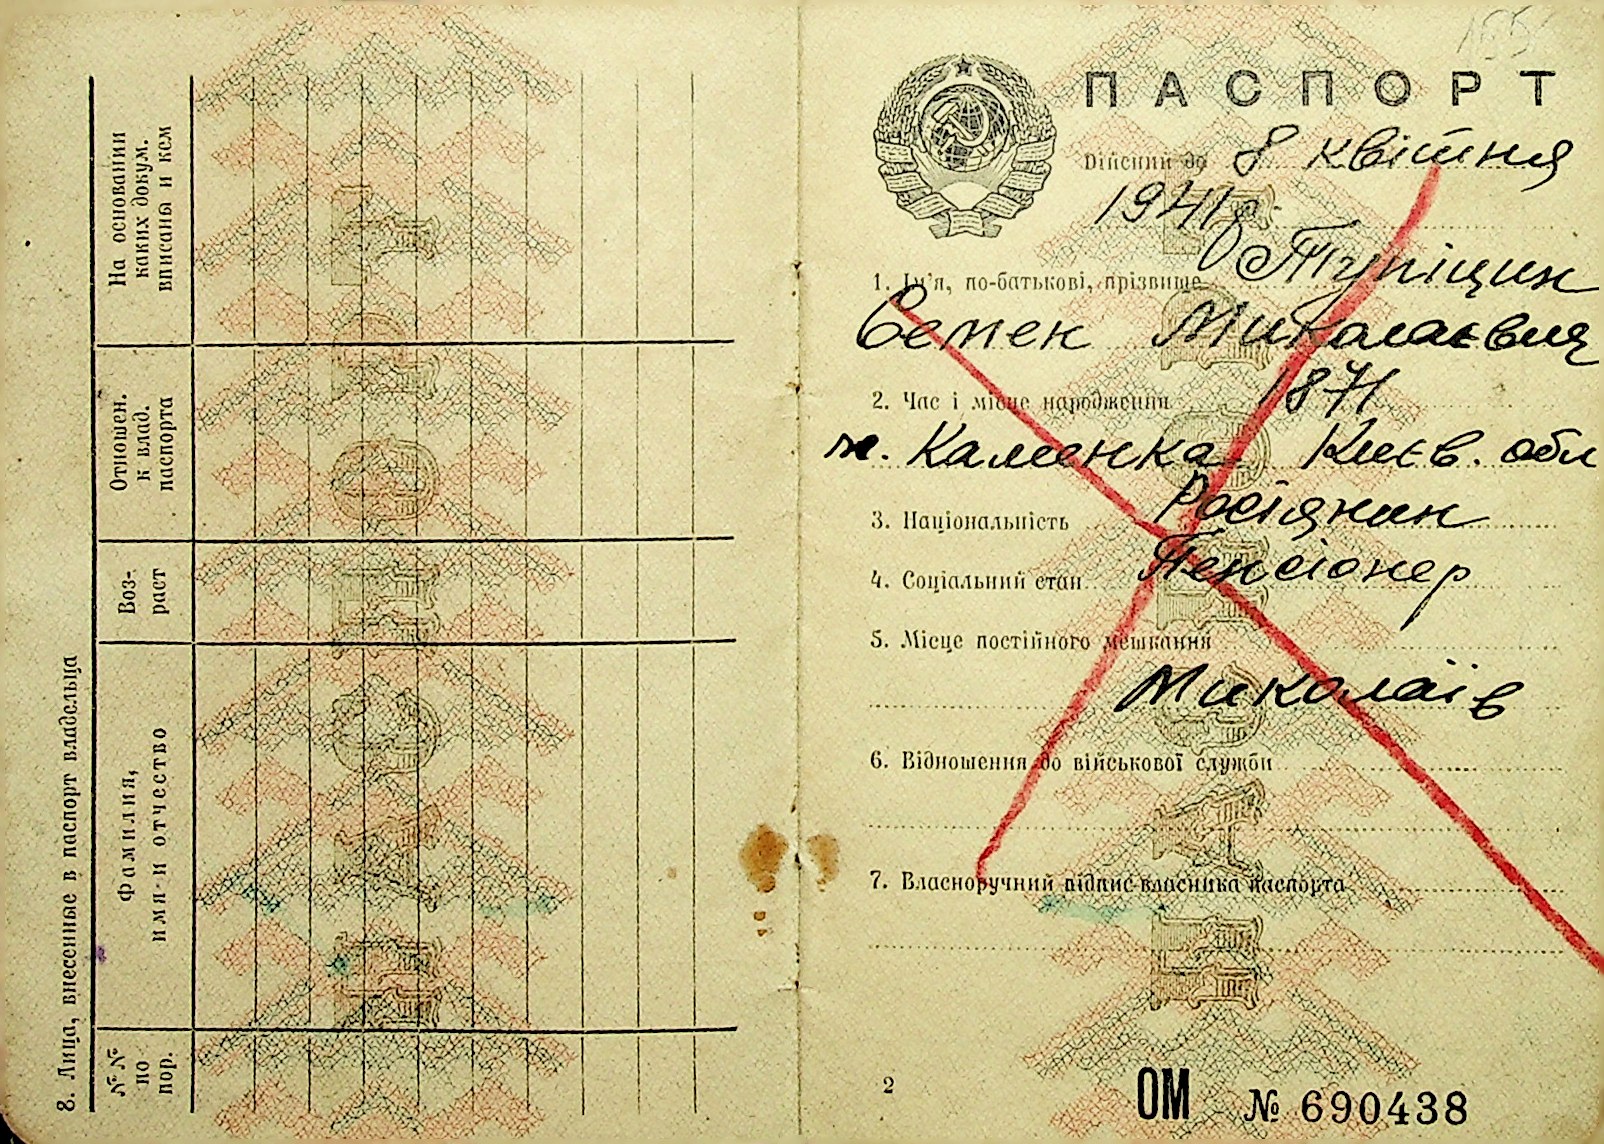 8. Лица, внесенные в паспорт владельца
№№ по пор.
Фамилия, имя и отчество
Возраст
Отношен. к влад. паспорта
На основании каких докум. вписаны и кем
ПАСПОРТ
Дійсний до 8 квітня
1941 р.
1. Ім'я, по-батькові, прізвище Тупіцин
Семен Миколаєвич
2. Час і місце народження 1871
м. Каменка Києв. обл
3. Національність Росіянин
4. Соціальний стан Пенсіонер
5. Місце постійного мешкання
Миколаїв
6. Відношення до військової служби
7. Власноручний підпис власника паспорта
2
ОМ № 690438